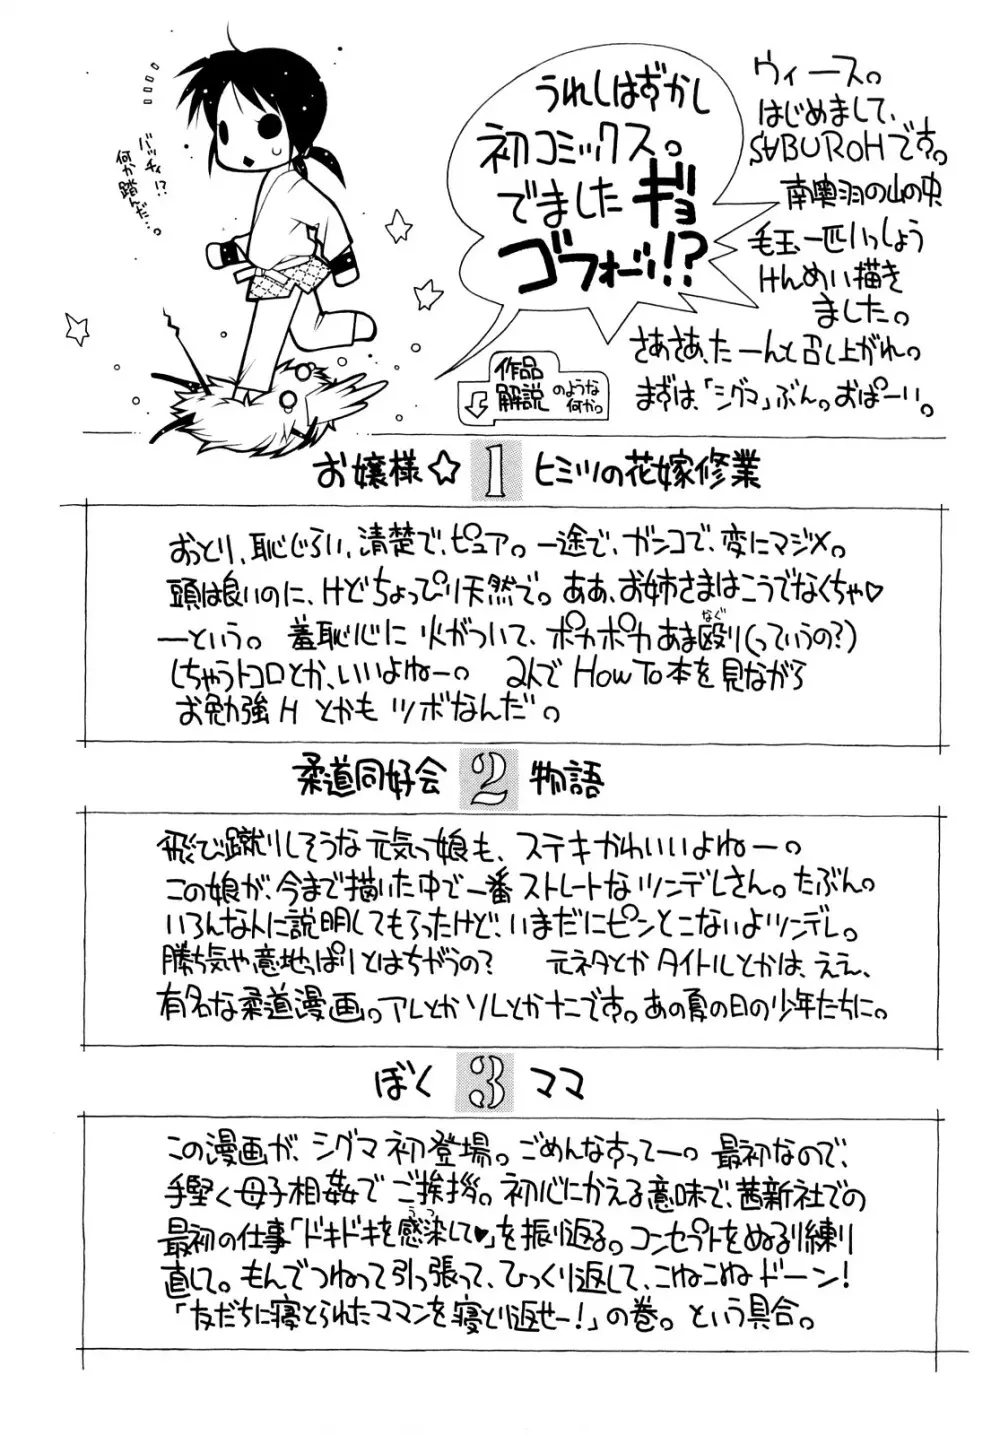 ウィース。
はじめまして、
SABUROHです。
南奥羽の山の中
毛玉一匹いっしょう
けんめい描き
ました。
さあさあ、たーんと召し上がれ。
まずは、「シグマ」ぶん。おぱーい。
うれしはずかし
初コミックス。
でましたギョ
ゴフォーッ!?
バッチィ!?
何か踏んだ…。
作品
解説
のような
何か。
お嬢様☆1 ヒミツの花嫁修業
おとり、恥じらい、清楚で、ピュア。一途で、ガンコで、変にマジメ。
頭は良いのに、けどちょっぴり天然で。ああ、お姉さまはこうでなくちゃ♥
―という。 羞恥心に 火がついて、ポカポカあま殴り(っていうの?)
なぐ
しちゃうトコロとか、いいよねー。 2人で HowTo本を見ながら
お勉強H とかも ツボなんだ。
柔道同好会 2 物語
飛び蹴りしそうな元気っ娘も、ステキかわいいよねー。
この娘が、今まで描いた中で一番ストレートなツンデレさん。たぶん。
いろんな人に説明してもらったけど、いまだにピンとこないよツンデレ。
勝ち気や意地っぱりとはちがうの? 元ネタとかタイトルとかは、ええ、
有名な柔道漫画。アレとかソレとかナニです。あの夏の日の少年たちに。
ぼく 3 ママ
この漫画が、シグマ初登場。ごめんなすってー。最初なので、
手堅く母子相姦でご挨拶。初心にかえる意味で、茜新社での
最初の仕事「ドキドキを感染して♥」を振り返る。コンセプトをぬるり練り
うつ
直して。もんでつねって引っ張って、ひっくり返して、こねこねドーン!
「友だちに寝とられたママンを寝とり返せー!」の巻。という具合。